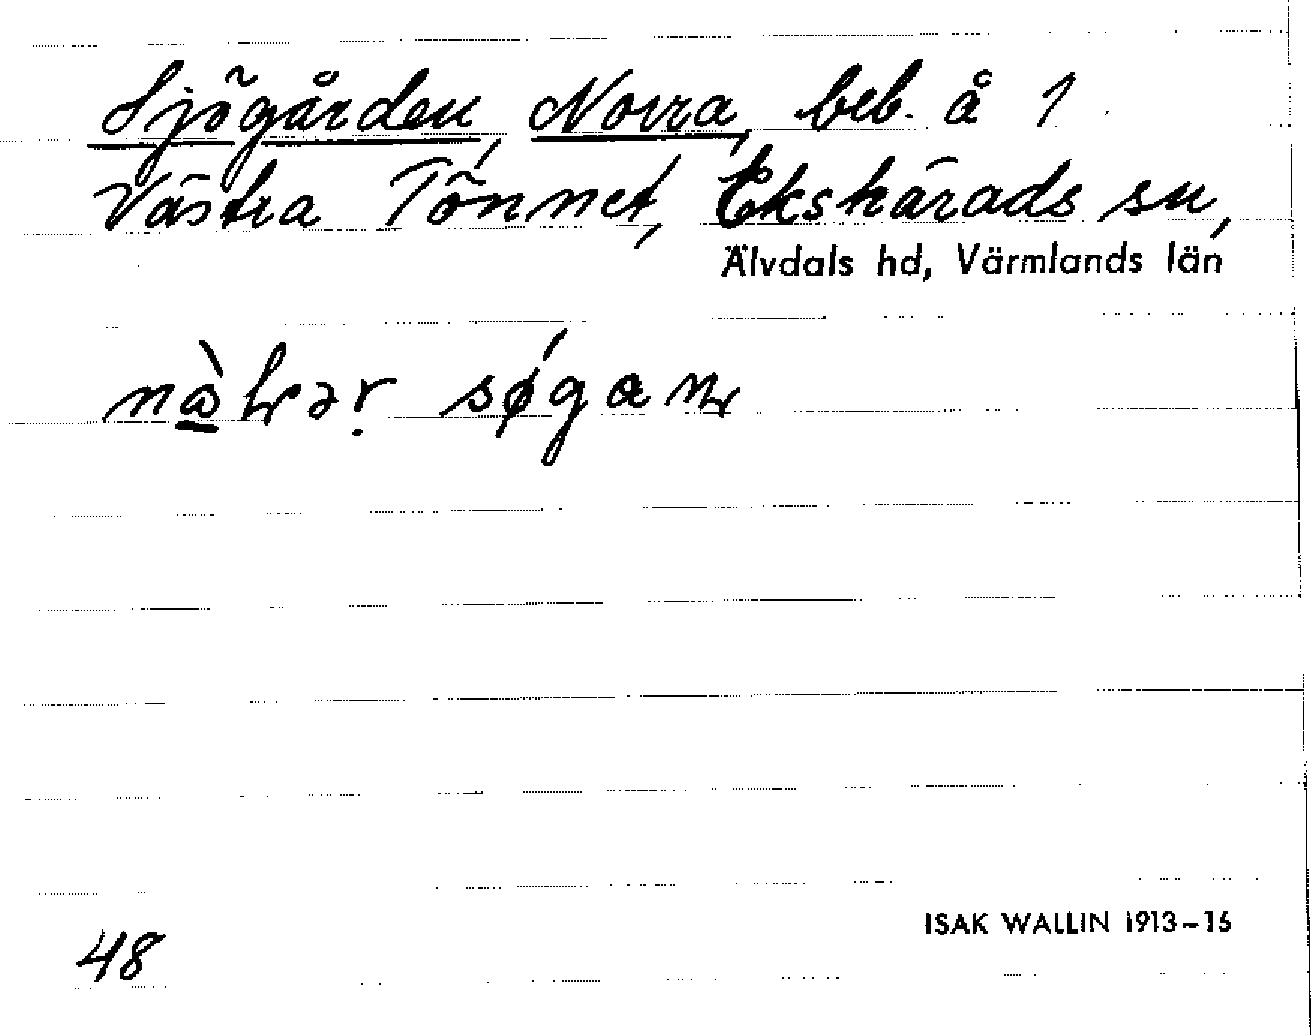 Sjögården, Norra, beb. å 1
Västra Tönnet, Ekshärads sn,
Älvdals hd, Värmlands län
48
ISAK WALLIN 1913–16